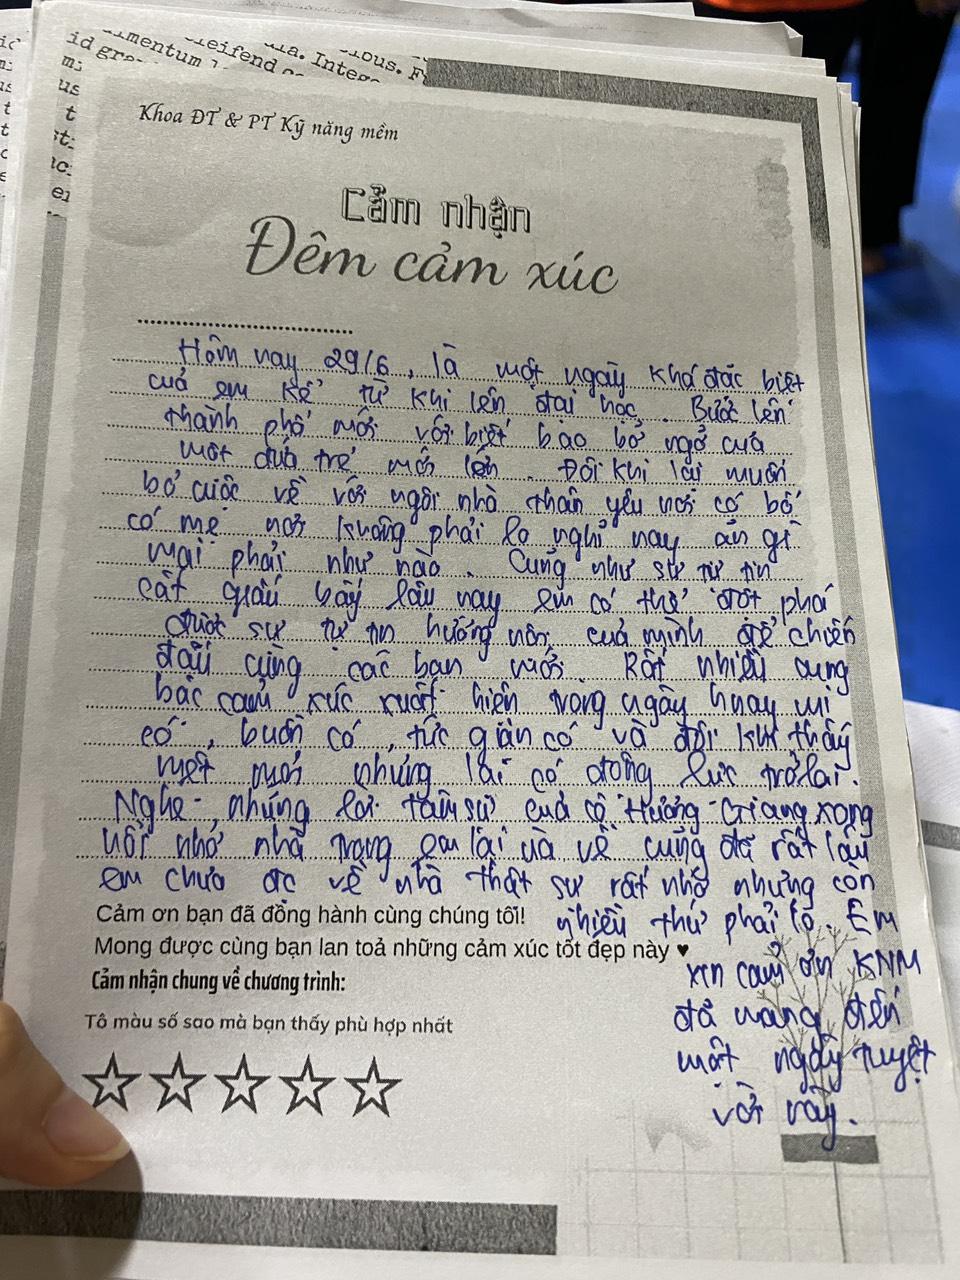 imentum
eifend
ia. Intege
ious. F
id gra
mi
us
t
st:
ic:
ei
Khoa ĐT & PT Kỹ năng mềm
Cảm nhận
Đêm cảm xúc
Hôm nay 29/6, là một ngày khá đặc biệt
của em kể từ khi lên đại học. Bước lên
thành phố mới với biết bao bở ngở của
một đứa trẻ mới lên. Đôi khi lại muốn
bỏ cuộc về với ngôi nhà thân yêu nơi có bố
có mẹ nơi không phải lo nghỉ nay ăn gì
mai phải như nào. Cũng như sự tự tin
cất giấu bấy lâu nay em có thể đột phá
được sự tự tin hướng nội của mình để chiến
đấu cùng các bạn mới. Rất nhiều cung
bậc cảm xúc xuất hiện trong ngày hnay vui
có, buồn có, tức giận có và đôi khi thấy
mệt mỏi nhưng lại có động lực trở lại.
Nghe những lời tâm sự của cô Hương Giang xong
nỗi nhớ nhà trong em lại ùa về cũng đã rất lâu
em chưa đc về nhà thật sự rất nhớ nhưng còn
nhiều thứ phải lo. Em
xin cảm ơn KNM
đã mang đến
một ngày tuyệt
vời này.
Cảm ơn bạn đã đồng hành cùng chúng tôi!
Mong được cùng bạn lan toả những cảm xúc tốt đẹp này ♥
Cảm nhận chung về chương trình:
Tô màu số sao mà bạn thấy phù hợp nhất